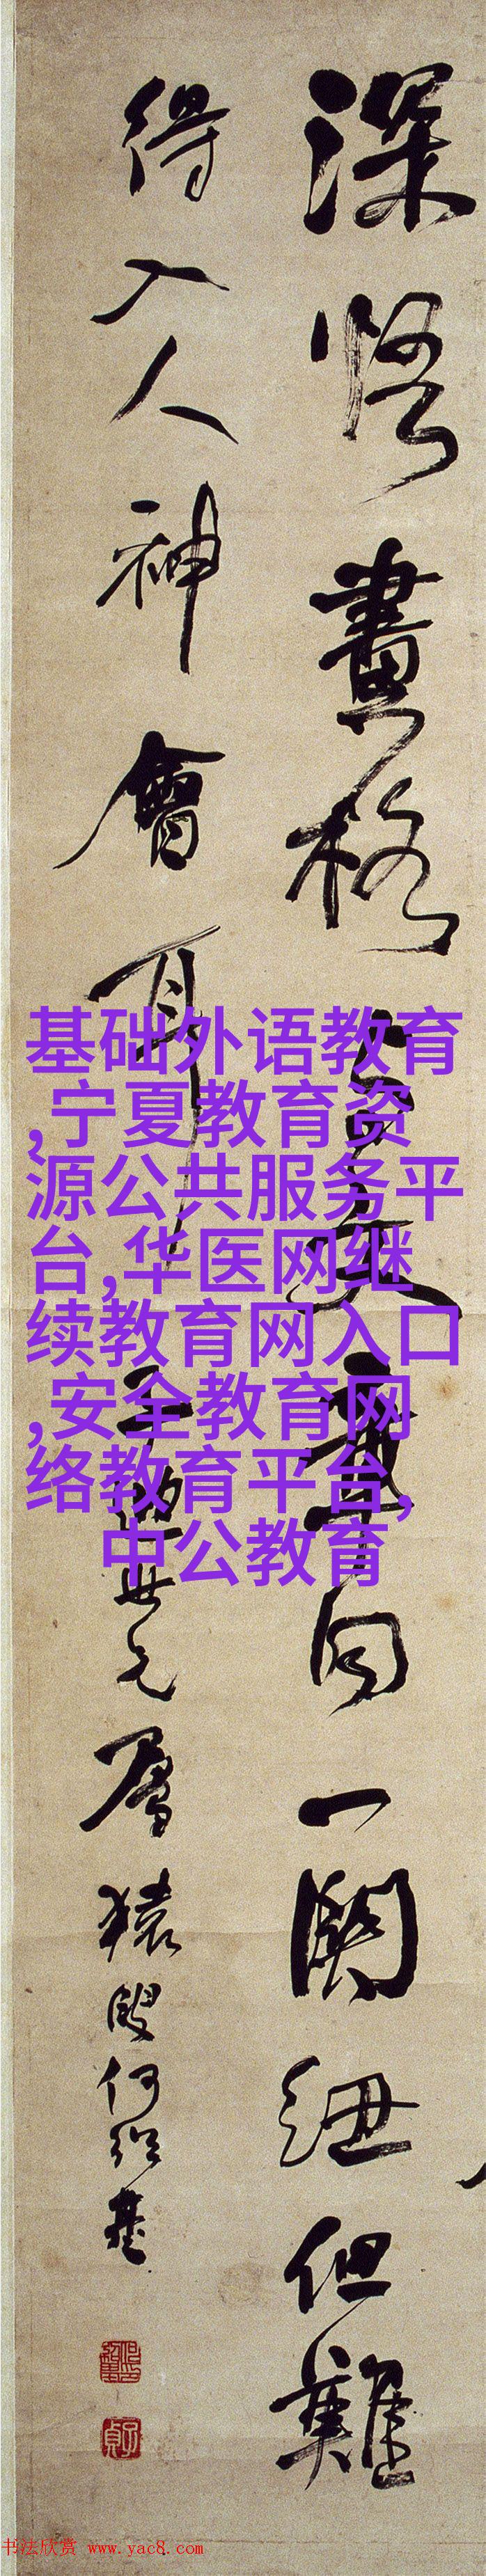 深悟畫格文章同一關紐但難
得入人神會耳
子世兄屬
猿叟何紹基
子貞
基础外语教育
,宁夏教育资
源公共服务平
台,华医网继
续教育网入口
,安全教育网
络教育平台,
中公教育
书法欣赏 www.yac8.com